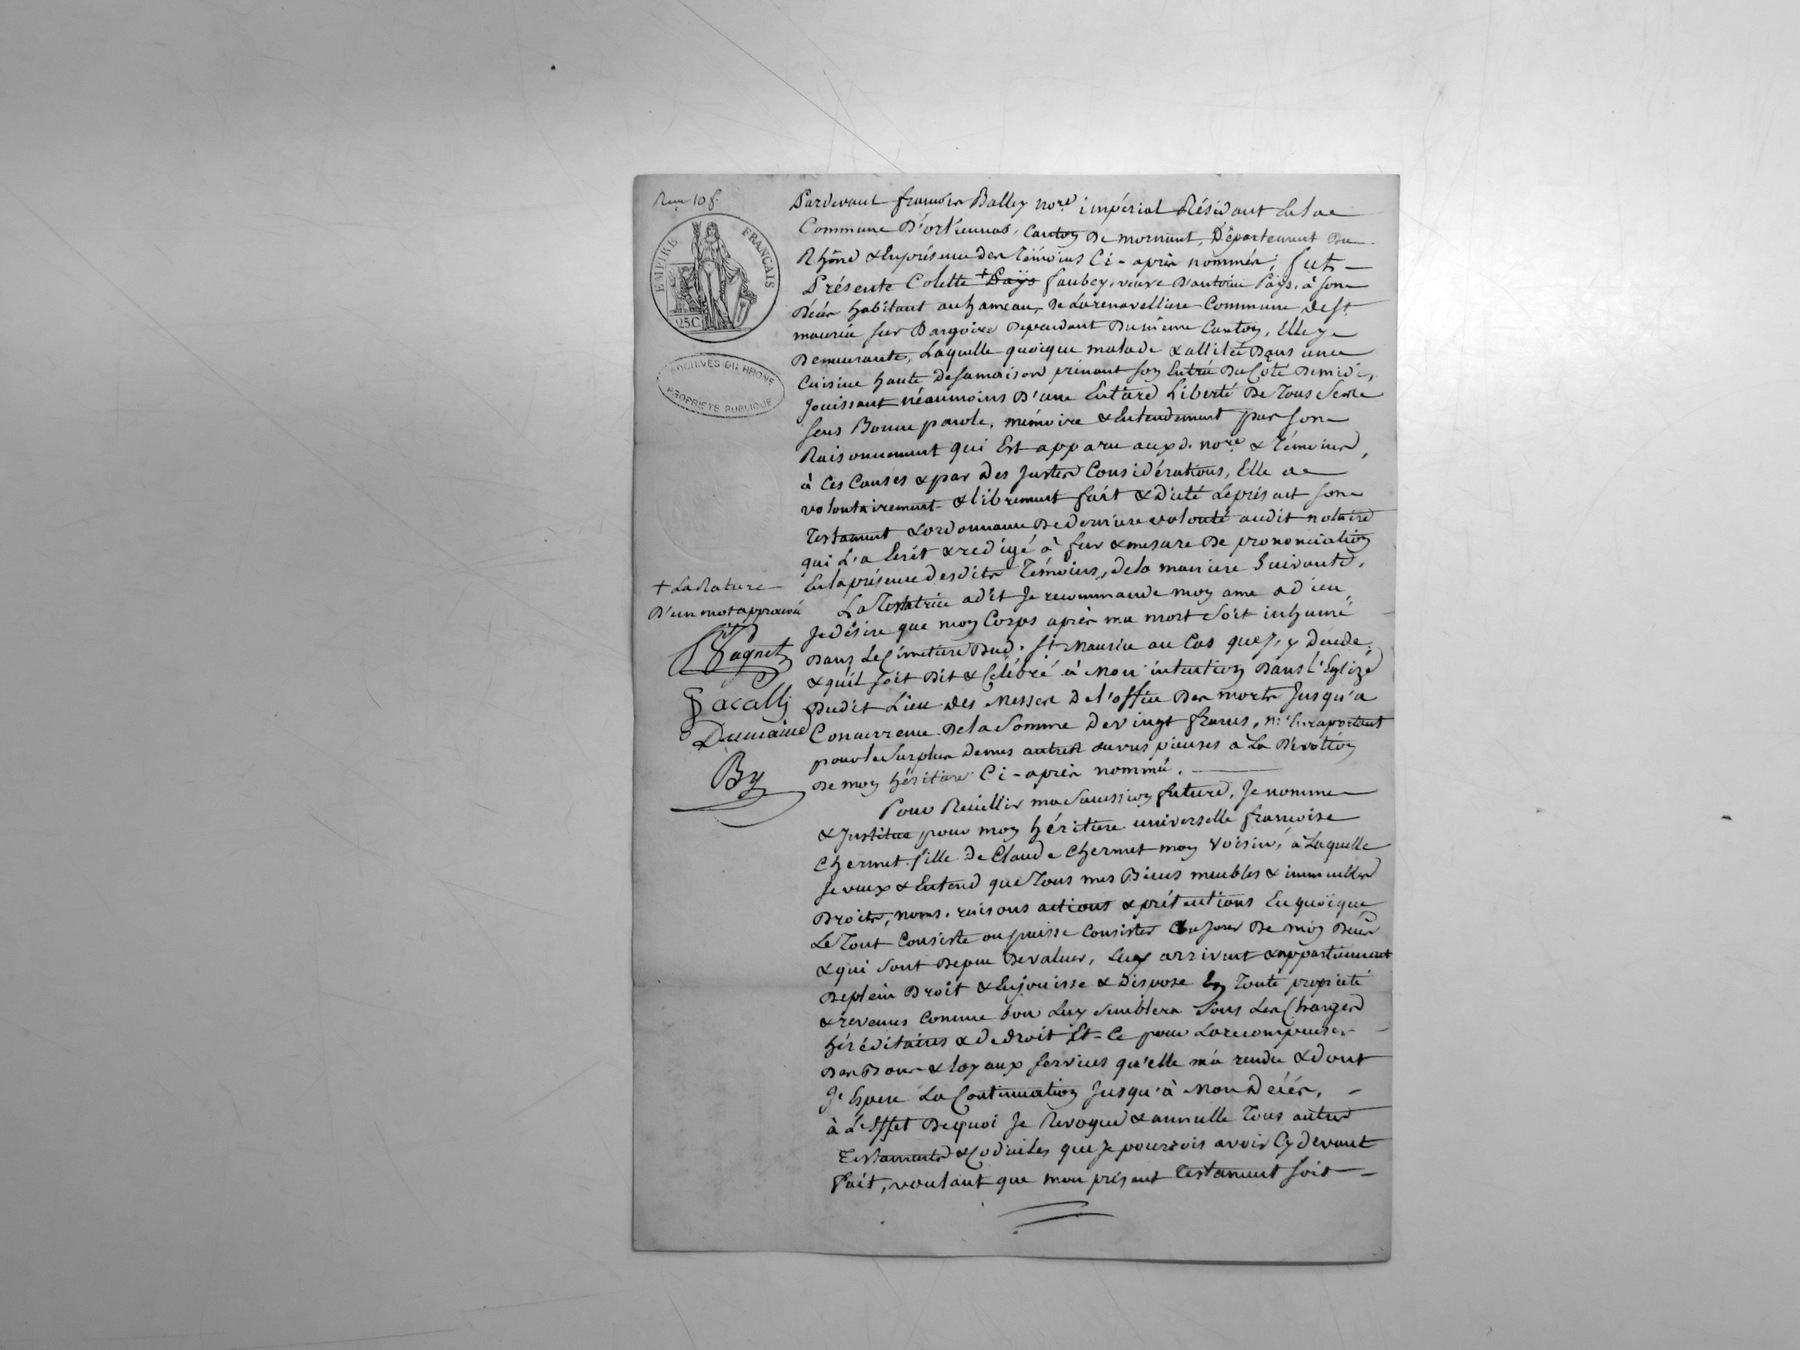 Pardevant françois Balley nore impérial Résidant En la
Commune D'orliennas, Canton De mornant, Département Du
Rhône & En présence des Témoins Ci-après nommés; fut
Présente Colette + Pays faubey, veuve D'antoine Pays, à son
Décès habitant au hameau De Commune de St
maurice sur Dargoire Dependant Du même Canton, Elle y
Demeurante, Laquelle quoique malade & allitée Dans une
Cuisine haute De sa maison prenant son Entrée Du Côté De midi,
Jouissant néaumoins D'une Entière Liberté De Tous Ses
sens Bonne parole, mémoire & Entendement par son
Raisonnement qui Est apparu auxd. nore & Témoins,
à Ces Causes & par Des Justes Considérations, Elle a
volontairement & librement fait & Dicté Le présent son
Testament & ordonnance De derniere volonté audit notaire
qui L'a Ecrit & redigé à fur & mesure De prononciation
En la présence desdits Témoins, de la maniere Suivante.
La Testatrice a dit Je recommande mon ame a dieu,
Je désire que mon Corps après ma mort Soit inhumé
Dans Le Cimetiere Dud. St Maurice au Cas que J'y Decede,
& qu'il soit Dit & Célébré à Mon intention Dans L'Eglize
Dudit Lieu des Messes De l'office Des morts Jusqu'a
Concurrence De la Somme De vingt francs, m'En raportant
pour le Surplus De mes autres œuvres pieuses à La Dévotion
De mon héritiere Ci-après nommée.
Pour Recuillir ma Succession future, Je nomme
& Institue pour mon héritiere universelle francoise
Chermet fille De Claude Chermet mon Voisin, à Laquelle
Je veux & Entend que Tous mes Biens meubles & immeubles
Droits, noms, raisons actions & prétentions En quoique
Le Tout Consiste ou puisse Consister au Jour De mon Décès
& qui sont De peu De valeur, Luy arrivent & appartiennent
De plein Droit & En jouisse & Dispose En Toute propriété
& revenus Comme bon Luy Semblera Sous Les Charges
héréditaires & De droit Et-Ce pour La recompenser
Des Bons & loyaux Services qu'elle m'a rendu & dont
J'Espere La Continuation Jusqu'à Mon Décès,
à L'Effet De quoi Je Revoque & annulle Tous autres
Testaments & Codiciles que Je pourrois avoir Cy devant
fait, voulant que mon présent Testament soit
10 f.
EMPIRE FRANÇAIS
25C
ARCHIVES DU RHÔNE
PROPRIÉTÉ PUBLIQUE
+ La Rature
D'un mot approuvée
Pagnet
Dumaine
By